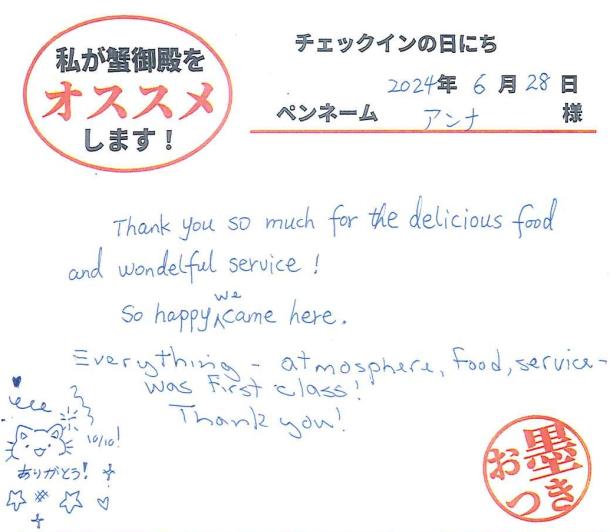 私が蟹御殿を
オススメ
します!
チェックインの日にち
2024年 6月28日
ペンネーム アンナ 様
Thank you so much for the delicious food
and wondelful service !
So happy we came here.
Everything - atmosphere, food, service-
was first class!
Thank you!
10/10!
ありがとう!
お墨つき